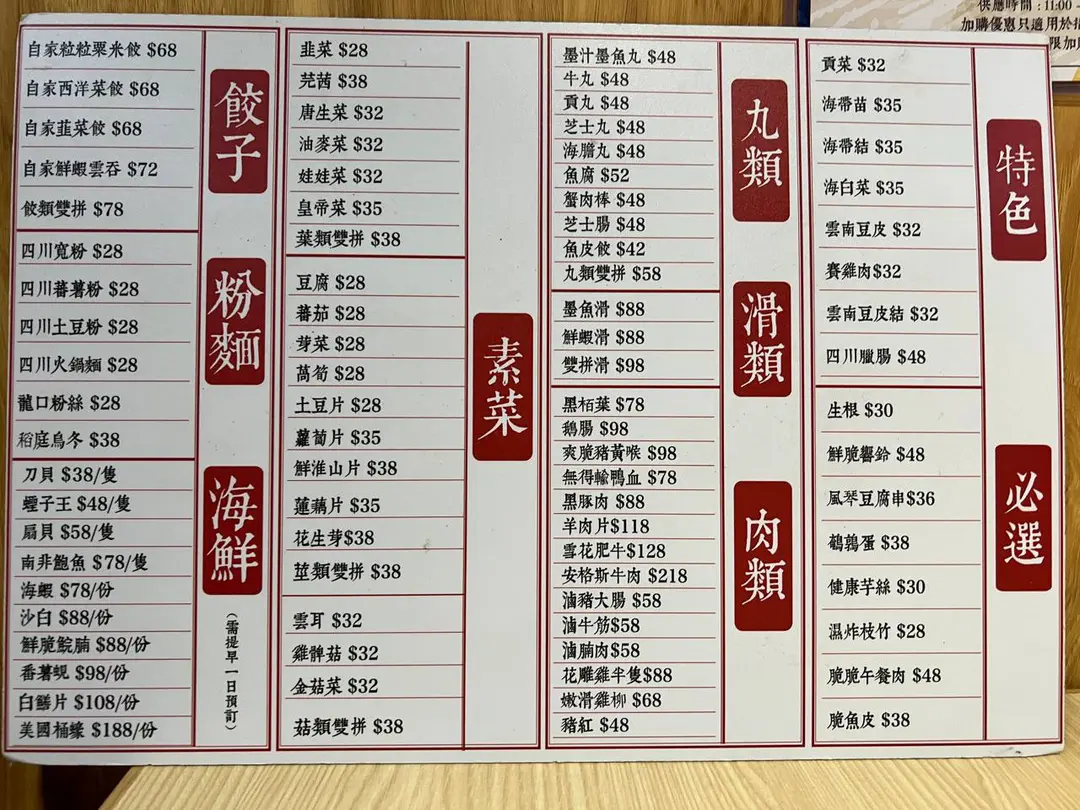 供應時間:11:00 -
加購優惠只適用於
限加
自家粒粒粟米餃 $68
自家西洋菜餃 $68
自家韭菜餃 $68
自家鮮蝦雲吞 $72
餃類雙拼 $78
餃子
四川寬粉 $28
四川蕃薯粉 $28
四川土豆粉 $28
四川火鍋麵 $28
龍口粉絲 $28
稻庭烏冬 $38
粉麵
刀貝 $38/隻
蟶子王 $48/隻
扇貝 $58/隻
南非鮑魚 $78/隻
海蝦 $78/份
沙白 $88/份
鮮脆鯇腩 $88/份
番薯蜆 $98/份
白鱔片 $108/份
美國桶蠔 $188/份
海鮮
(需提早一日預訂)
韭菜 $28
芫茜 $38
唐生菜 $32
油麥菜 $32
娃娃菜 $32
皇帝菜 $35
葉類雙拼 $38
豆腐 $28
蕃茄 $28
芽菜 $28
萵筍 $28
土豆片 $28
蘿蔔片 $35
鮮淮山片 $38
蓮藕片 $35
花生芽$38
莖類雙拼 $38
雲耳 $32
雞髀菇 $32
金菇菜 $32
菇類雙拼 $38
素菜
墨汁墨魚丸 $48
牛丸 $48
貢丸 $48
芝士丸 $48
海膽丸 $48
魚腐 $52
蟹肉棒 $48
芝士腸 $48
魚皮餃 $42
丸類雙拼 $58
丸類
墨魚滑 $88
鮮蝦滑 $88
雙拼滑 $98
滑類
黑栢葉 $78
鵝腸 $98
爽脆豬黃喉 $98
無得輸鴨血 $78
黑豚肉 $88
羊肉片$118
雪花肥牛$128
安格斯牛肉 $218
滷豬大腸 $58
滷牛筋$58
滷腩肉$58
花雕雞半隻$88
嫩滑雞柳 $68
豬紅 $48
肉類
貢菜 $32
海帶苗 $35
海帶結 $35
海白菜 $35
雲南豆皮 $32
賽雞肉$32
雲南豆皮結 $32
四川臘腸 $48
特色
生根 $30
鮮脆響鈴 $48
風琴豆腐串$36
鵪鶉蛋 $38
健康芋絲 $30
濕炸枝竹 $28
脆脆午餐肉 $48
脆魚皮 $38
必選